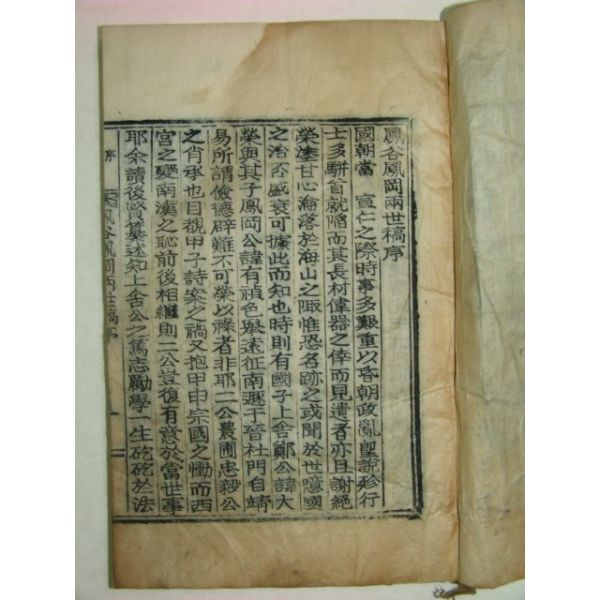 鳳谷鳳岡兩世稿序
國朝當 宣仁之際時事多艱重以昏朝政亂聖說殄行
士多騈首就陷而其長材偉器之倖而見遺者亦且謝絶
榮塗甘心淪落於海山之陬惟恐名跡之或聞於世噫國
之治否盛衰可據此而知也時則有國子上舍鄭公諱大
榮與其子鳳岡公諱有禎色擧遠征南遯于晉杜門自靖
易所謂儉德辟難不可榮以祿者非耶二公農圃忠毅公
之肖承也目覩甲子詩案之禍又抱甲申宗國之慟而西
宮之變南漢之恥前後相繼則二公豈復有意於當世事
耶余讀後賢纂述知上舍公之篤志勵學一生矻矻於法
序 鳳谷鳳岡兩世稿序 一